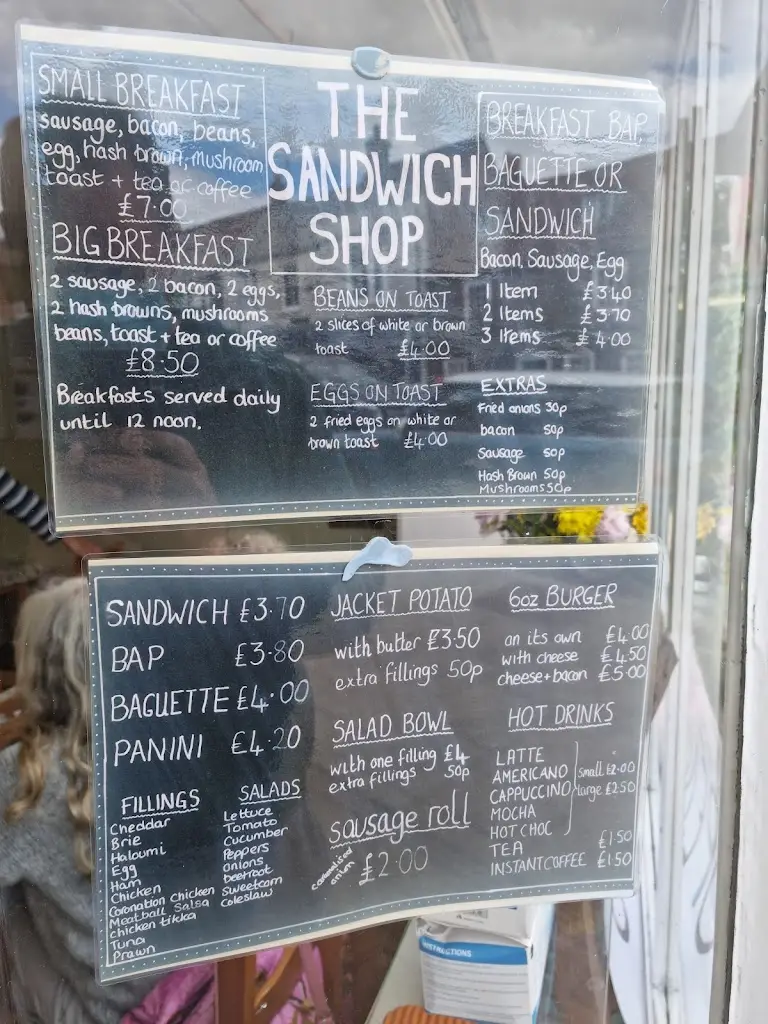 SMALL BREAKFAST
sausage, bacon, beans,
egg, hash brown, mushroom
toast + tea or coffee
£7.00
BIG BREAKFAST
2 sausage, 2 bacon, 2 eggs,
2 hash browns, mushrooms
beans, toast + tea or coffee
£8.50
Breakfasts served daily
until 12 noon.
THE
SANDWICH
SHOP
BEANS ON TOAST
2 slices of white or brown
toast £4.00
EGGS ON TOAST
2 fried eggs on white or
brown toast £4.00
BREAKFAST BAP,
BAGUETTE OR
SANDWICH
Bacon, Sausage, Egg
1 Item £3.40
2 Items £3.70
3 Items £4.00
EXTRAS
Fried onions 30p
bacon 50p
Sausage 50p
Hash Brown 50p
Mushrooms 50p
SANDWICH £3.70
BAP £3.80
BAGUETTE £4.00
PANINI £4.20
FILLINGS
Cheddar
Brie
Haloumi
Egg
Ham
Chicken
Coronation chicken
Meatball Salsa
chicken tikka
Tuna
Prawn
SALADS
Lettuce
Tomato
Cucumber
Peppers
Onions
beetroot
Sweetcorn
Coleslaw
JACKET POTATO
with butter £3.50
extra fillings 50p
SALAD BOWL
with one filling £4
extra fillings 50p
sausage roll
caramelised
onion
£2.00
6oz BURGER
on its own £4.00
with cheese £4.50
cheese + bacon £5.00
HOT DRINKS
LATTE
AMERICANO small £2.00
CAPPUCCINO large £2.50
MOCHA
HOT CHOC
TEA £1.50
INSTANT COFFEE £1.50